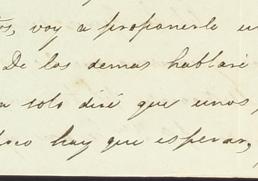 voy a proponerle un
De los demas hablaré
solo diré que unos
hay que esperar,